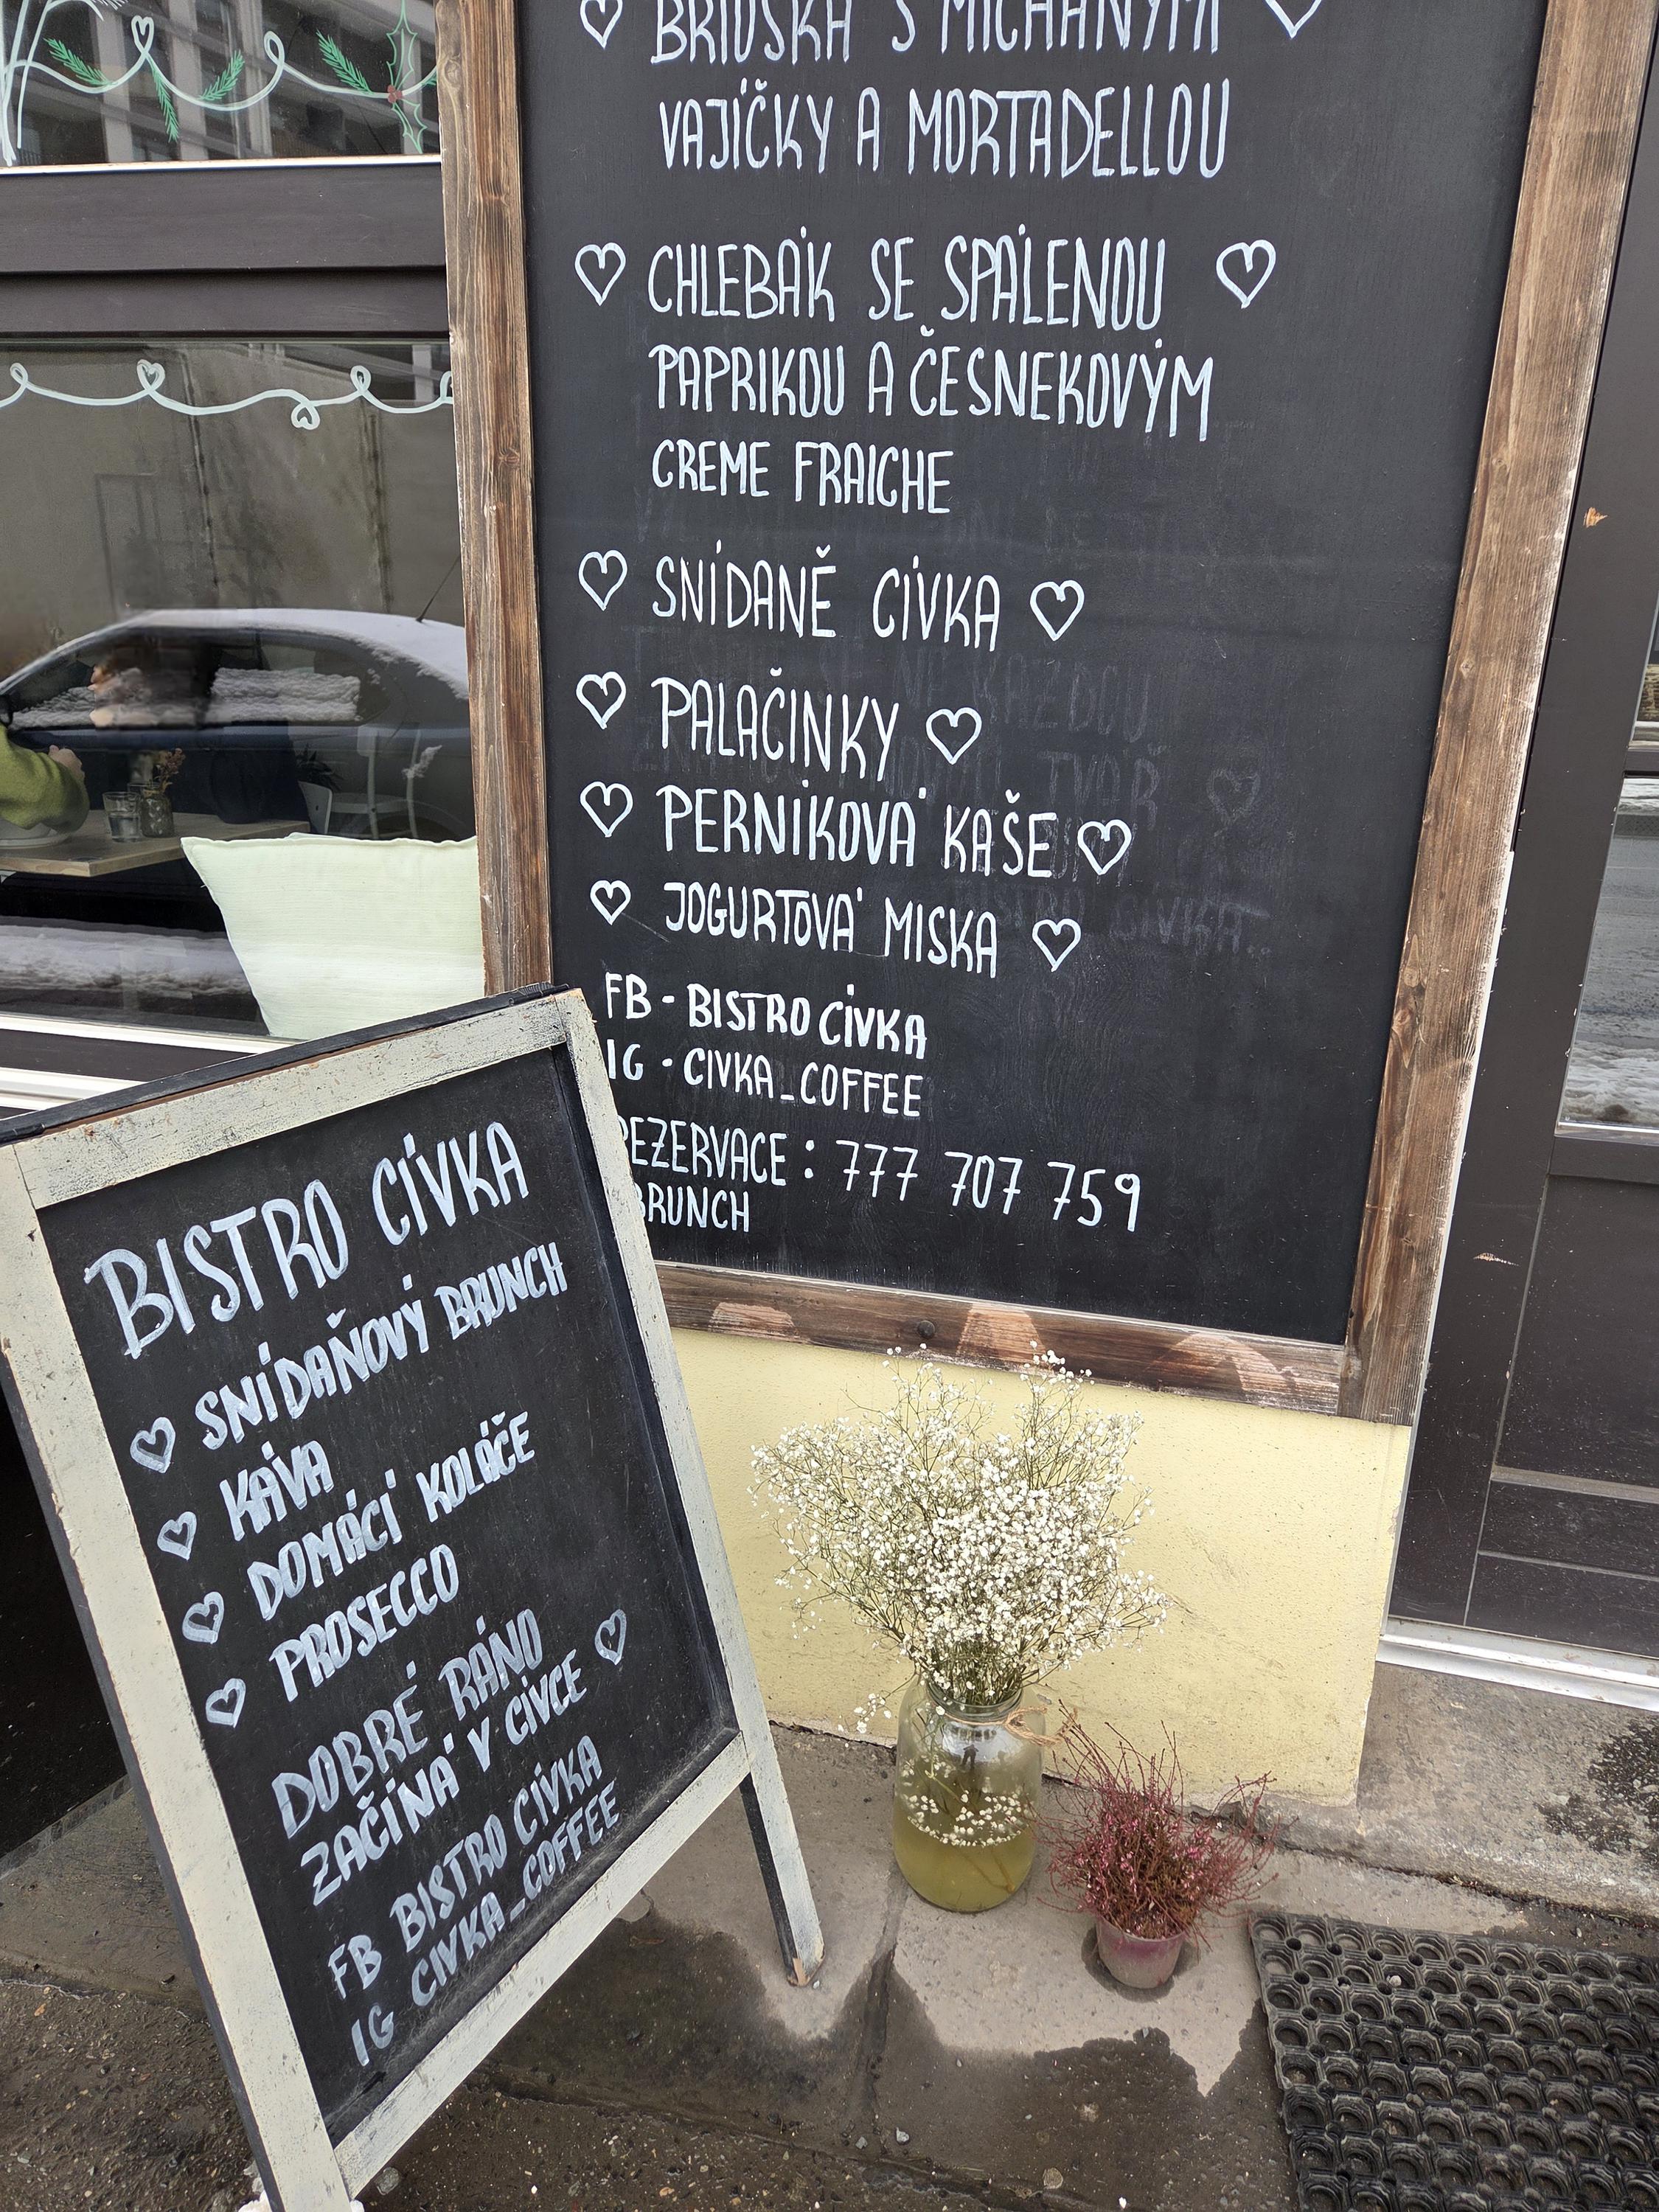 BRIOŠKA S MÍCHANÝMI
VAJÍČKY A MORTADELLOU
CHLEBÁK SE SPÁLENOU
PAPRIKOU A ČESNEKOVÝM
CREME FRAICHE
SNÍDANĚ CÍVKA
PALAČINKY
PERNÍKOVÁ KAŠE
JOGURTOVÁ MISKA
FB - BISTRO CÍVKA
IG - CIVKA_COFFEE
REZERVACE : 777 707 759
BRUNCH
BISTRO CÍVKA
SNÍDAŇOVÝ BRUNCH
KÁVA
DOMÁCÍ KOLÁČE
PROSECCO
DOBRÉ RÁNO
ZAČÍNÁ V CÍVCE
FB BISTRO CÍVKA
IG CIVKA_COFFEE